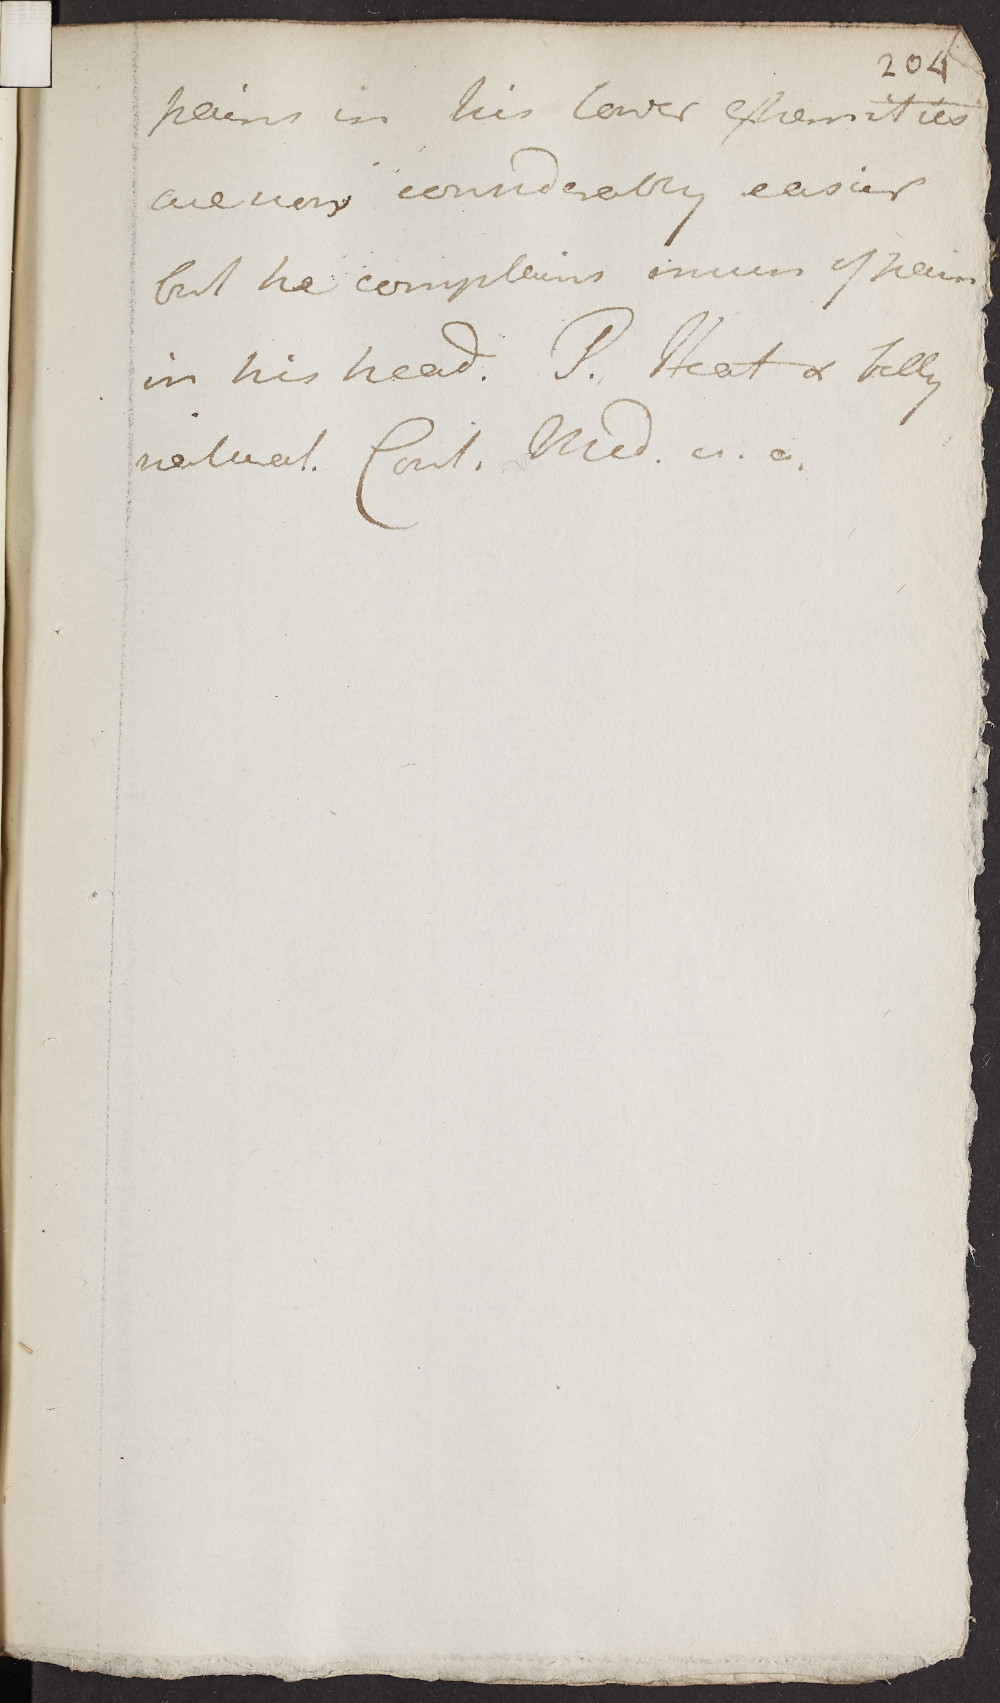 204
pains in his lower extremities
are now considerably easier
but he complains of pain
in his head. P. Heat & belly
natural. Cont. Med. u. a.